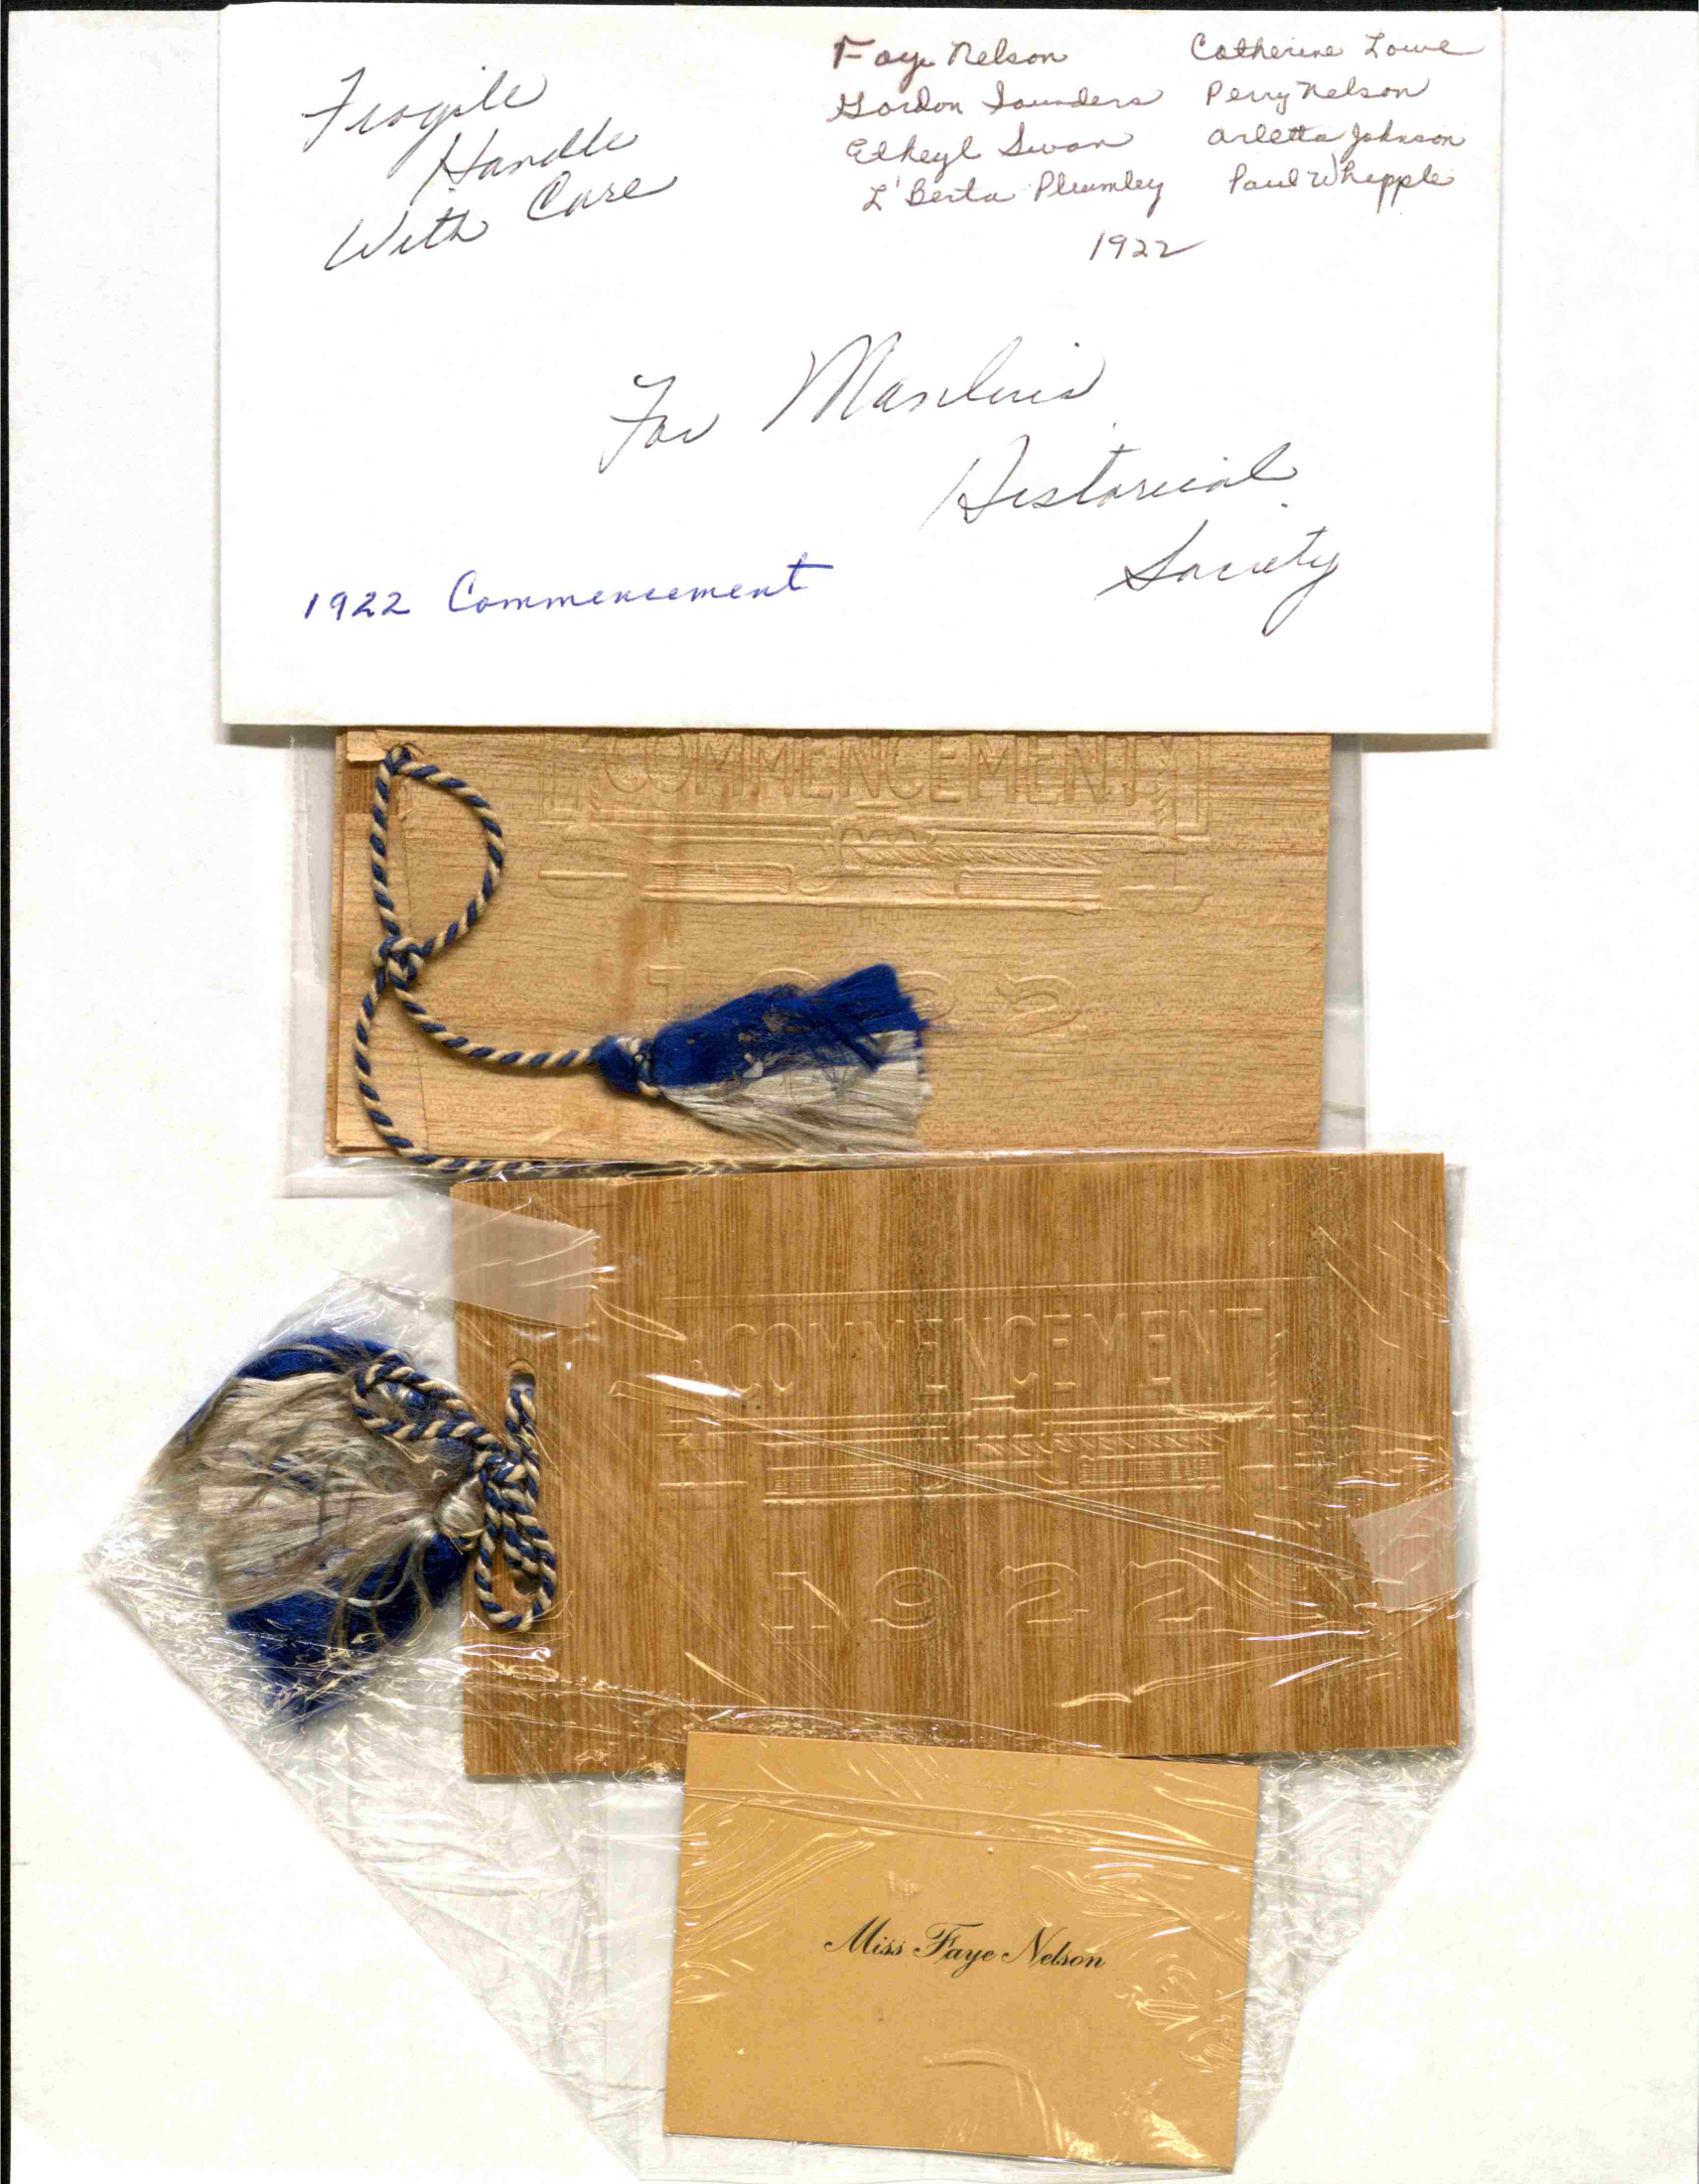 Fragile
Handle
With Care
Faye Nelson
Gordon Saunders
Etheyl Swan
L'Berta Plumley
Catherine Lowe
Perry Nelson
Arletta Johnson
Paul Whipple
1922
For Manlius
Historical
Society
1922 Commencement
COMMENCEMENT
1922
COMMENCEMENT
1922
Miss Faye Nelson